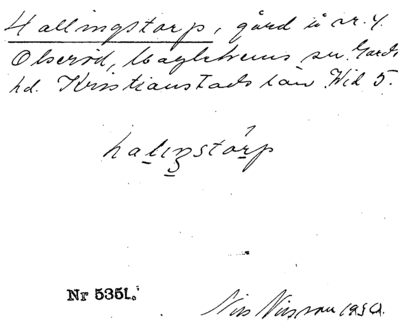 Hallingstorp, gård å nr. 4
Olseröd, Maglehems sn. Gärds
hd. Kristianstads län Hid 5.
haliŋstórp
Nr 5351.
Nils Nilsson 1934.